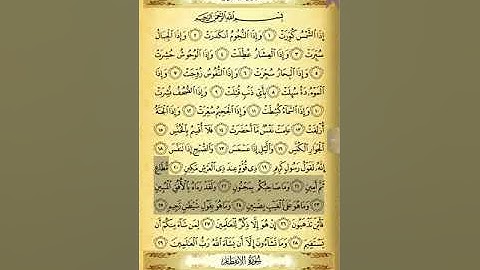 بِسْمِ اللَّهِ الرَّحْمَٰنِ الرَّحِيمِ
إِذَا الشَّمْسُ كُوِّرَتْ ١ وَإِذَا النُّجُومُ انْكَدَرَتْ ٢ وَإِذَا الْجِبَالُ
سُيِّرَتْ ٣ وَإِذَا الْعِشَارُ عُطِّلَتْ ٤ وَإِذَا الْوُحُوشُ حُشِرَتْ
٥ وَإِذَا الْبِحَارُ سُجِّرَتْ ٦ وَإِذَا النُّفُوسُ زُوِّجَتْ ٧ وَإِذَا
الْمَوْءُدَةُ سُئِلَتْ ٨ بِأَيِّ ذَنْبٍ قُتِلَتْ ٩ وَإِذَا الصُّحُفُ نُشِرَتْ
١٠ وَإِذَا السَّمَاءُ كُشِطَتْ ١١ وَإِذَا الْجَحِيمُ سُعِّرَتْ ١٢ وَإِذَا الْجَنَّةُ
أُزْلِفَتْ ١٣ عَلِمَتْ نَفْسٌ مَا أَحْضَرَتْ ١٤ فَلَا أُقْسِمُ بِالْخُنَّسِ ١٥
الْجَوَارِ الْكُنَّسِ ١٦ وَاللَّيْلِ إِذَا عَسْعَسَ ١٧ وَالصُّبْحِ إِذَا تَنَفَّسَ ١٨
إِنَّهُ لَقَوْلُ رَسُولٍ كَرِيمٍ ١٩ ذِي قُوَّةٍ عِنْدَ ذِي الْعَرْشِ مَكِينٍ ٢٠ مُطَاعٍ
ثَمَّ أَمِينٍ ٢١ وَمَا صَاحِبُكُمْ بِمَجْنُونٍ ٢٢ وَلَقَدْ رَآهُ بِالْأُفُقِ الْمُبِينِ
٢٣ وَمَا هُوَ عَلَى الْغَيْبِ بِضَنِينٍ ٢٤ وَمَا هُوَ بِقَوْلِ شَيْطَٰنٍ رَجِيمٍ ٢٥
فَأَيْنَ تَذْهَبُونَ ٢٦ إِنْ هُوَ إِلَّا ذِكْرٌ لِلْعَٰلَمِينَ ٢٧ لِمَنْ شَاءَ مِنْكُمْ أَنْ
يَسْتَقِيمَ ٢٨ وَمَا تَشَاءُونَ إِلَّا أَنْ يَشَاءَ اللَّهُ رَبُّ الْعَٰلَمِينَ ٢٩
سُورَةُ الْاِنْفِطَارِ